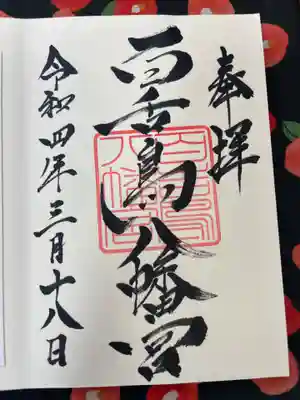 奉拝
百舌鳥八幡宮
令和四年三月十八日